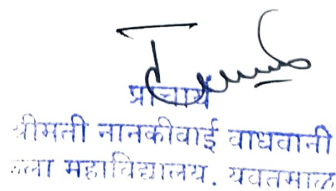 प्राचार्य
श्रीमती नानकीबाई वाधवानी
कला महाविद्यालय. यवतमाळ